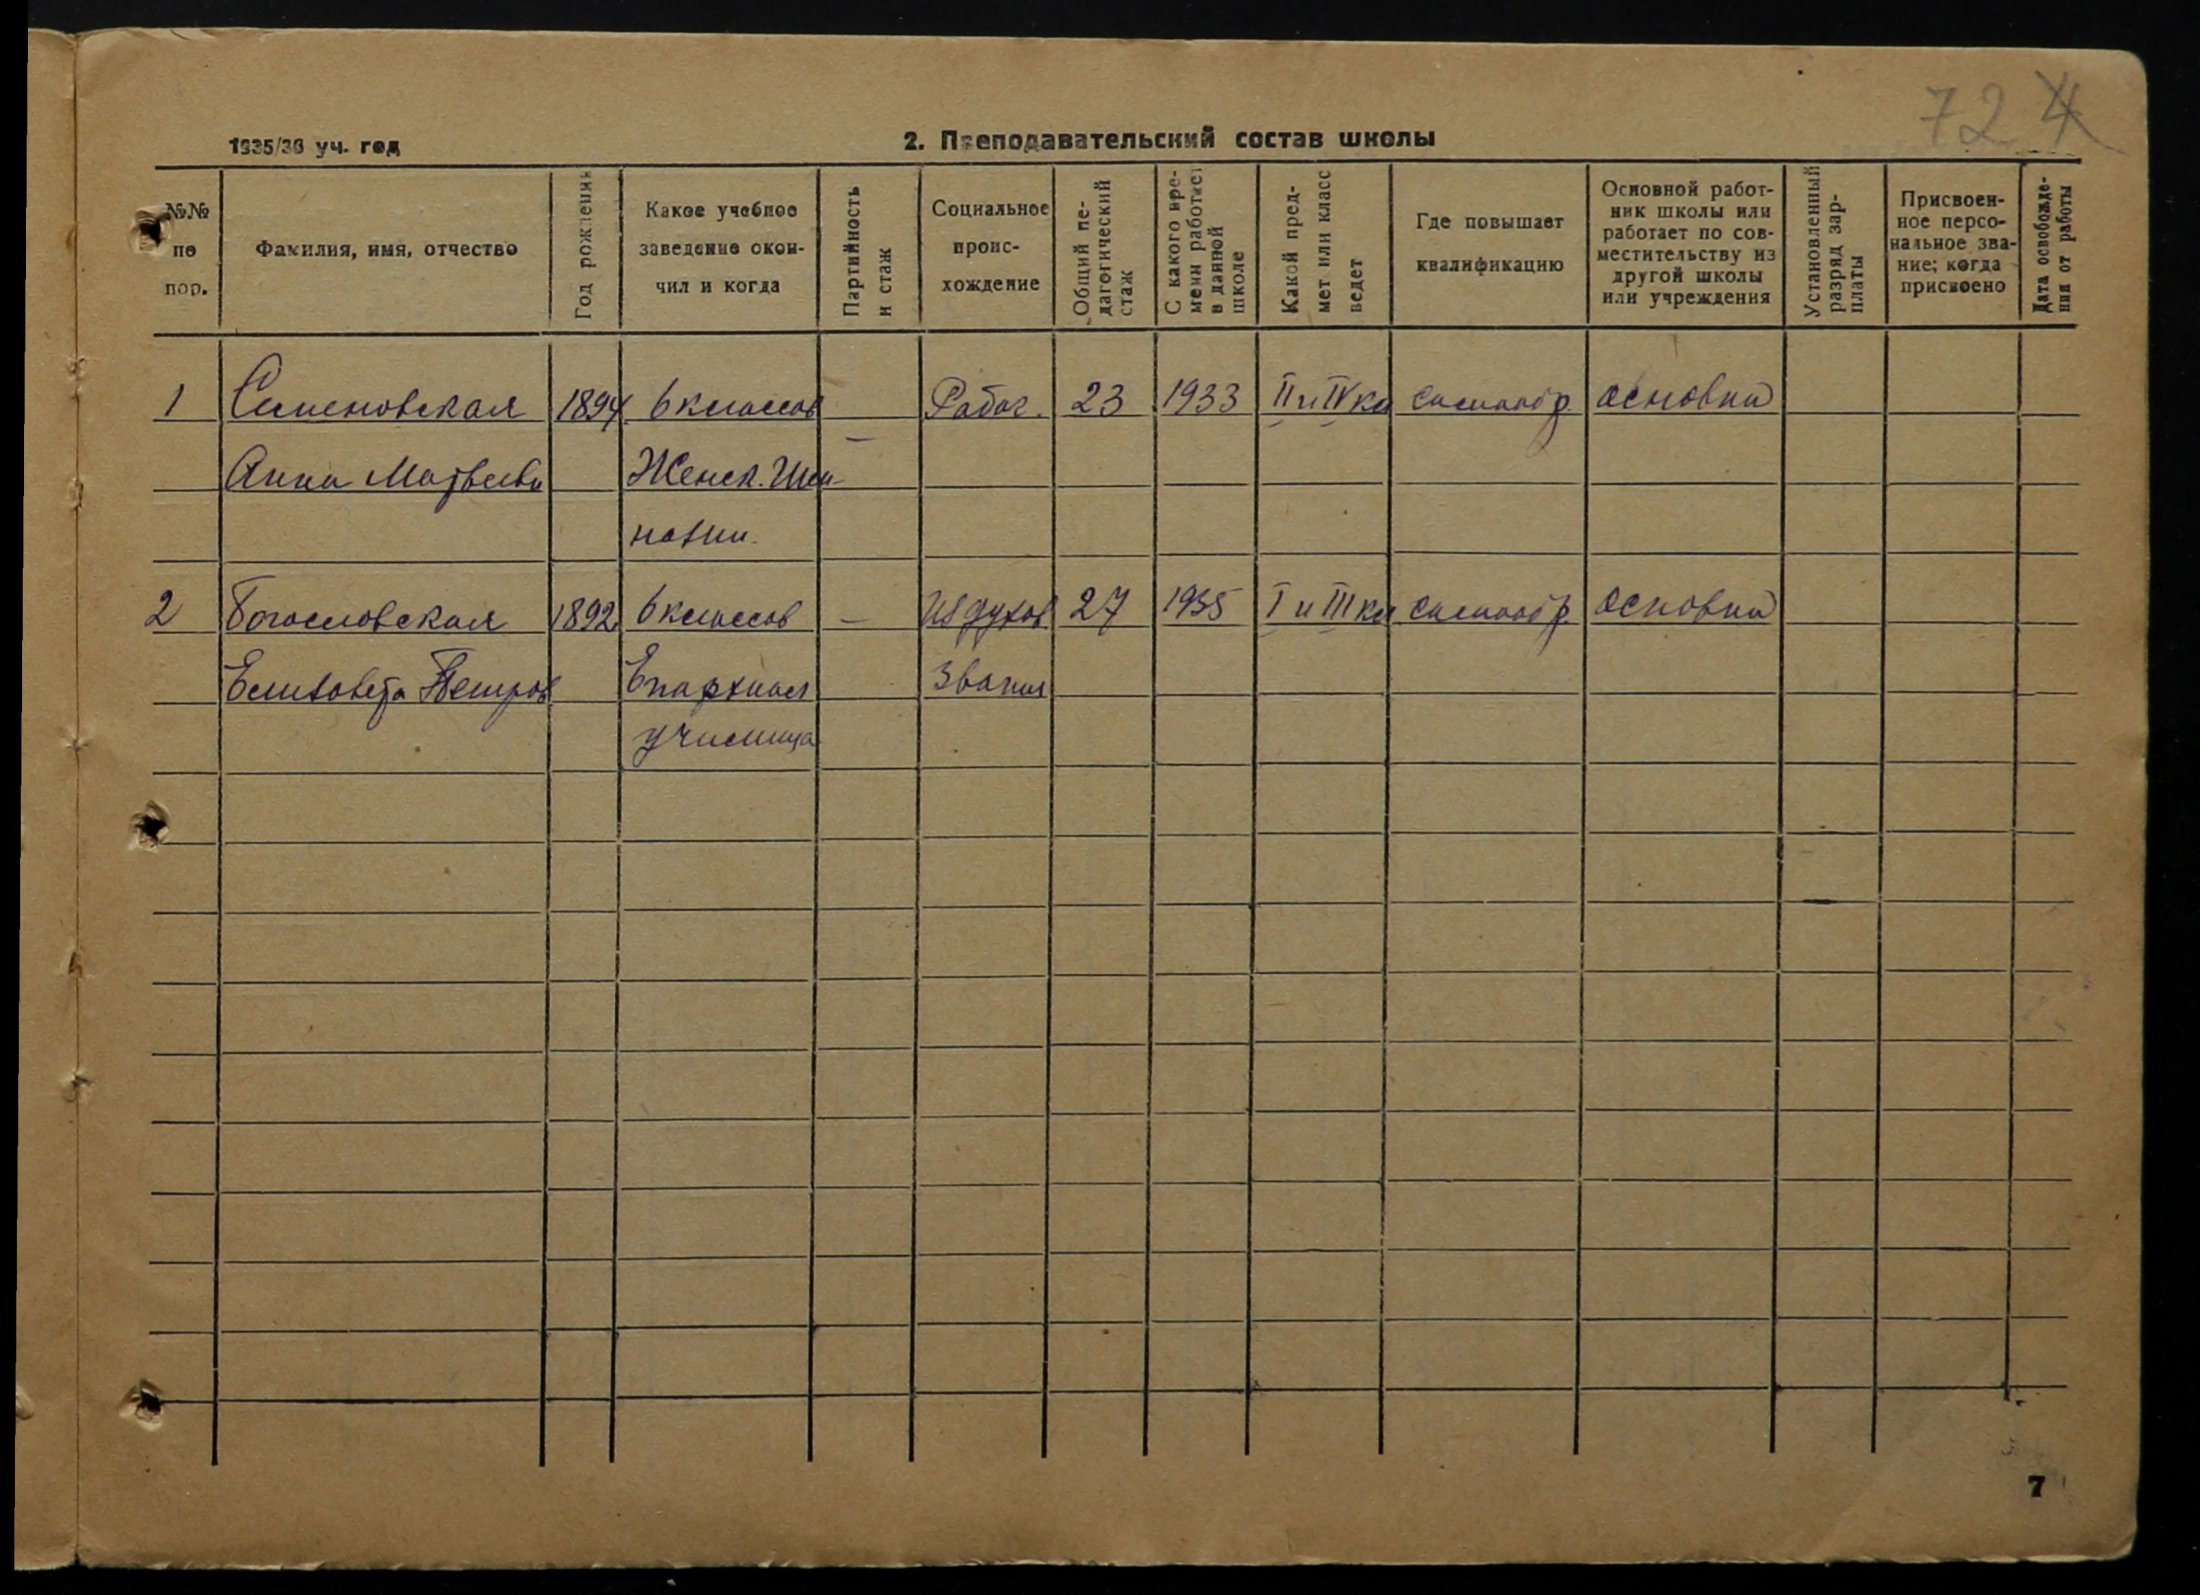 72
1935/36 уч. год
2. Преподавательский состав школы
№№ по пор.
Фамилия, имя, отчество
Год рождения
Какое учебное заведение окончил и когда
Партийность и стаж
Социальное происхождение
Общий педагогический стаж
С какого времени работает в данной школе
Какой предмет или класс ведет
Где повышает квалификацию
Основной работник школы или работает по совместительству из другой школы или учреждения
Установленный разряд зарплаты
Присвоенное персональное звание; когда присвоено
Дата освобождения от работы
1 Семеновская 1894 6 классов — Рабоч. 23 1933 II и IV кл самообр. основной
Анна Матвеевн Женск. Гим
назии.
2 Богословская 1892 6 классов — из духов. 27 1935 I и III кл самообр. основной
Елизавета Петров Епархиал звания
училища
7